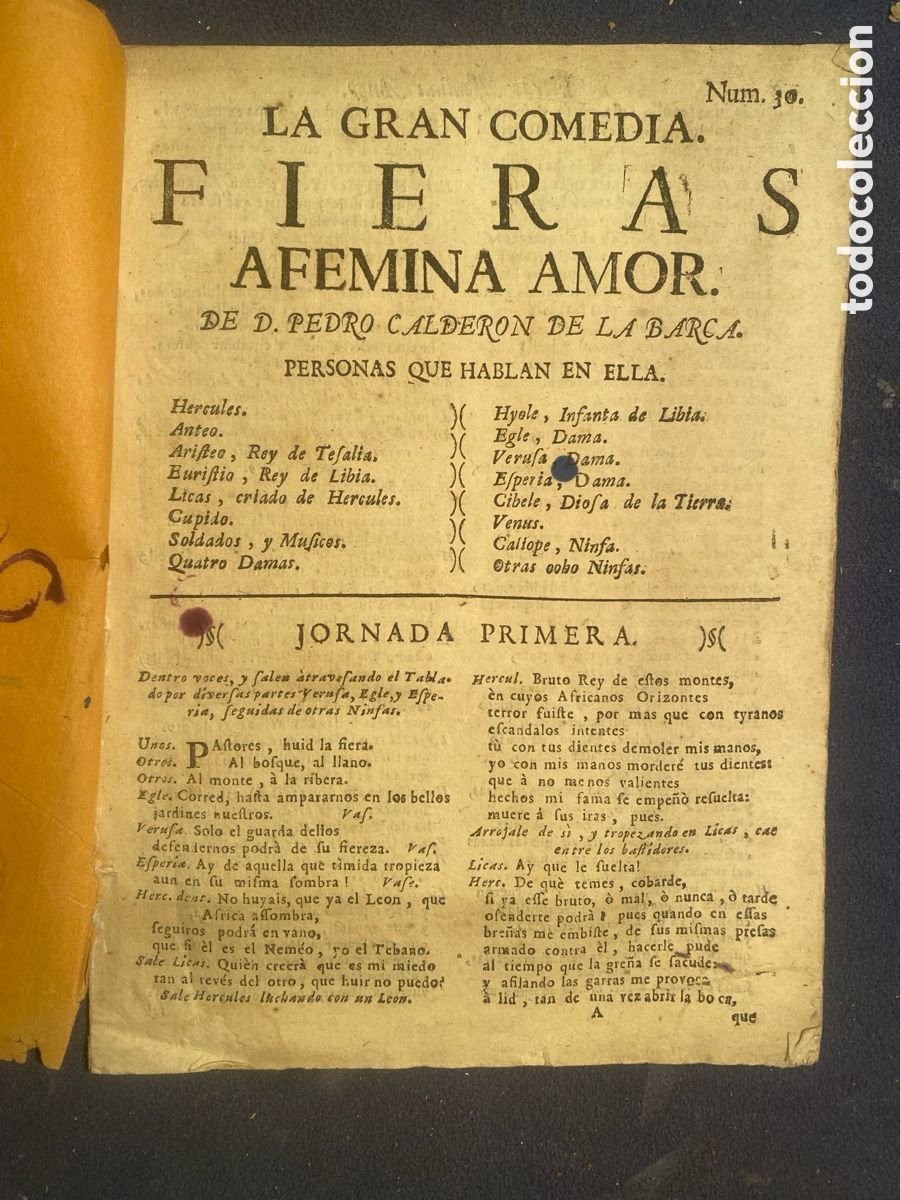 Num. 30.
LA GRAN COMEDIA.
FIERAS
AFEMINA AMOR.
DE D. PEDRO CALDERON DE LA BARCA.
PERSONAS QUE HABLAN EN ELLA.
Hercules.
Anteo.
Ariſteo, Rey de Teſalia.
Euriſtio, Rey de Libia.
Licas, criado de Hercules.
Cupido.
Soldados, y Muſicos.
Quatro Damas.
Hyole, Infanta de Libia.
Egle, Dama.
Veruſa Dama.
Eſperia, Dama.
Cibele, Dioſa de la Tierra.
Venus.
Caliope, Ninfa.
Otras ooho Ninfas.
)§( JORNADA PRIMERA. )§(
Dentro voces, y ſalen àtraveſando el Tabla-
do por diverſas partes Veruſa, Egle, y Eſpe-
ria, ſeguidas de otras Ninfas.
Unos. PAſtores, huid la fiera.
Otros. Al boſque, al llano.
Otros. Al monte, à la ribera.
Egle. Corred, haſta ampararnos en los bellos
jardines nueſtros. Vaſ.
Veruſa. Solo el guarda dellos
defendernos podrà de ſu fiereza. Vaſ.
Eſperia. Ay de aquella que tìmida tropieza
aun en ſu miſma ſombra! Vaſe.
Herc. dent. No huyais, que ya el Leon, que
Africa aſſombra,
ſeguiros podrá en vano,
que ſi èl es el Neméo, yo el Tebano.
Sale Licas. Quièn creerà que es mi miedo
tan al revés del otro, que huir no puedo?
Sale Hercules luchando con un Leon.
Hercul. Bruto Rey de eſtos montes,
èn cuyos Africanos Orizontes
terror fuiſte, por mas que con tyranos
eſcandalos intentes
tù con tus dientes demoler mis manos,
yo con mis manos morderé tus dientes:
que à no menos valientes
hechos mi fama ſe empeñò reſuelta:
muere á ſus iras, pues.
Arrojale de sì, y tropezando en Licas, cae
entre los baſtidores.
Licas. Ay que le ſuelta!
Herc. De què temes, cobarde,
ſi ya eſſe bruto, ò mal, ò nunca, ò tarde
ofenderte podrà? pues quando en eſſas
breñas me embiſte, de ſus miſmas preſas
armado contra èl, hacerle pude
al tiempo que la greña ſe ſacude,
y afilando las garras me provoca
à lid, tan de una vez abrir la boca,
A
que
todocoleccion